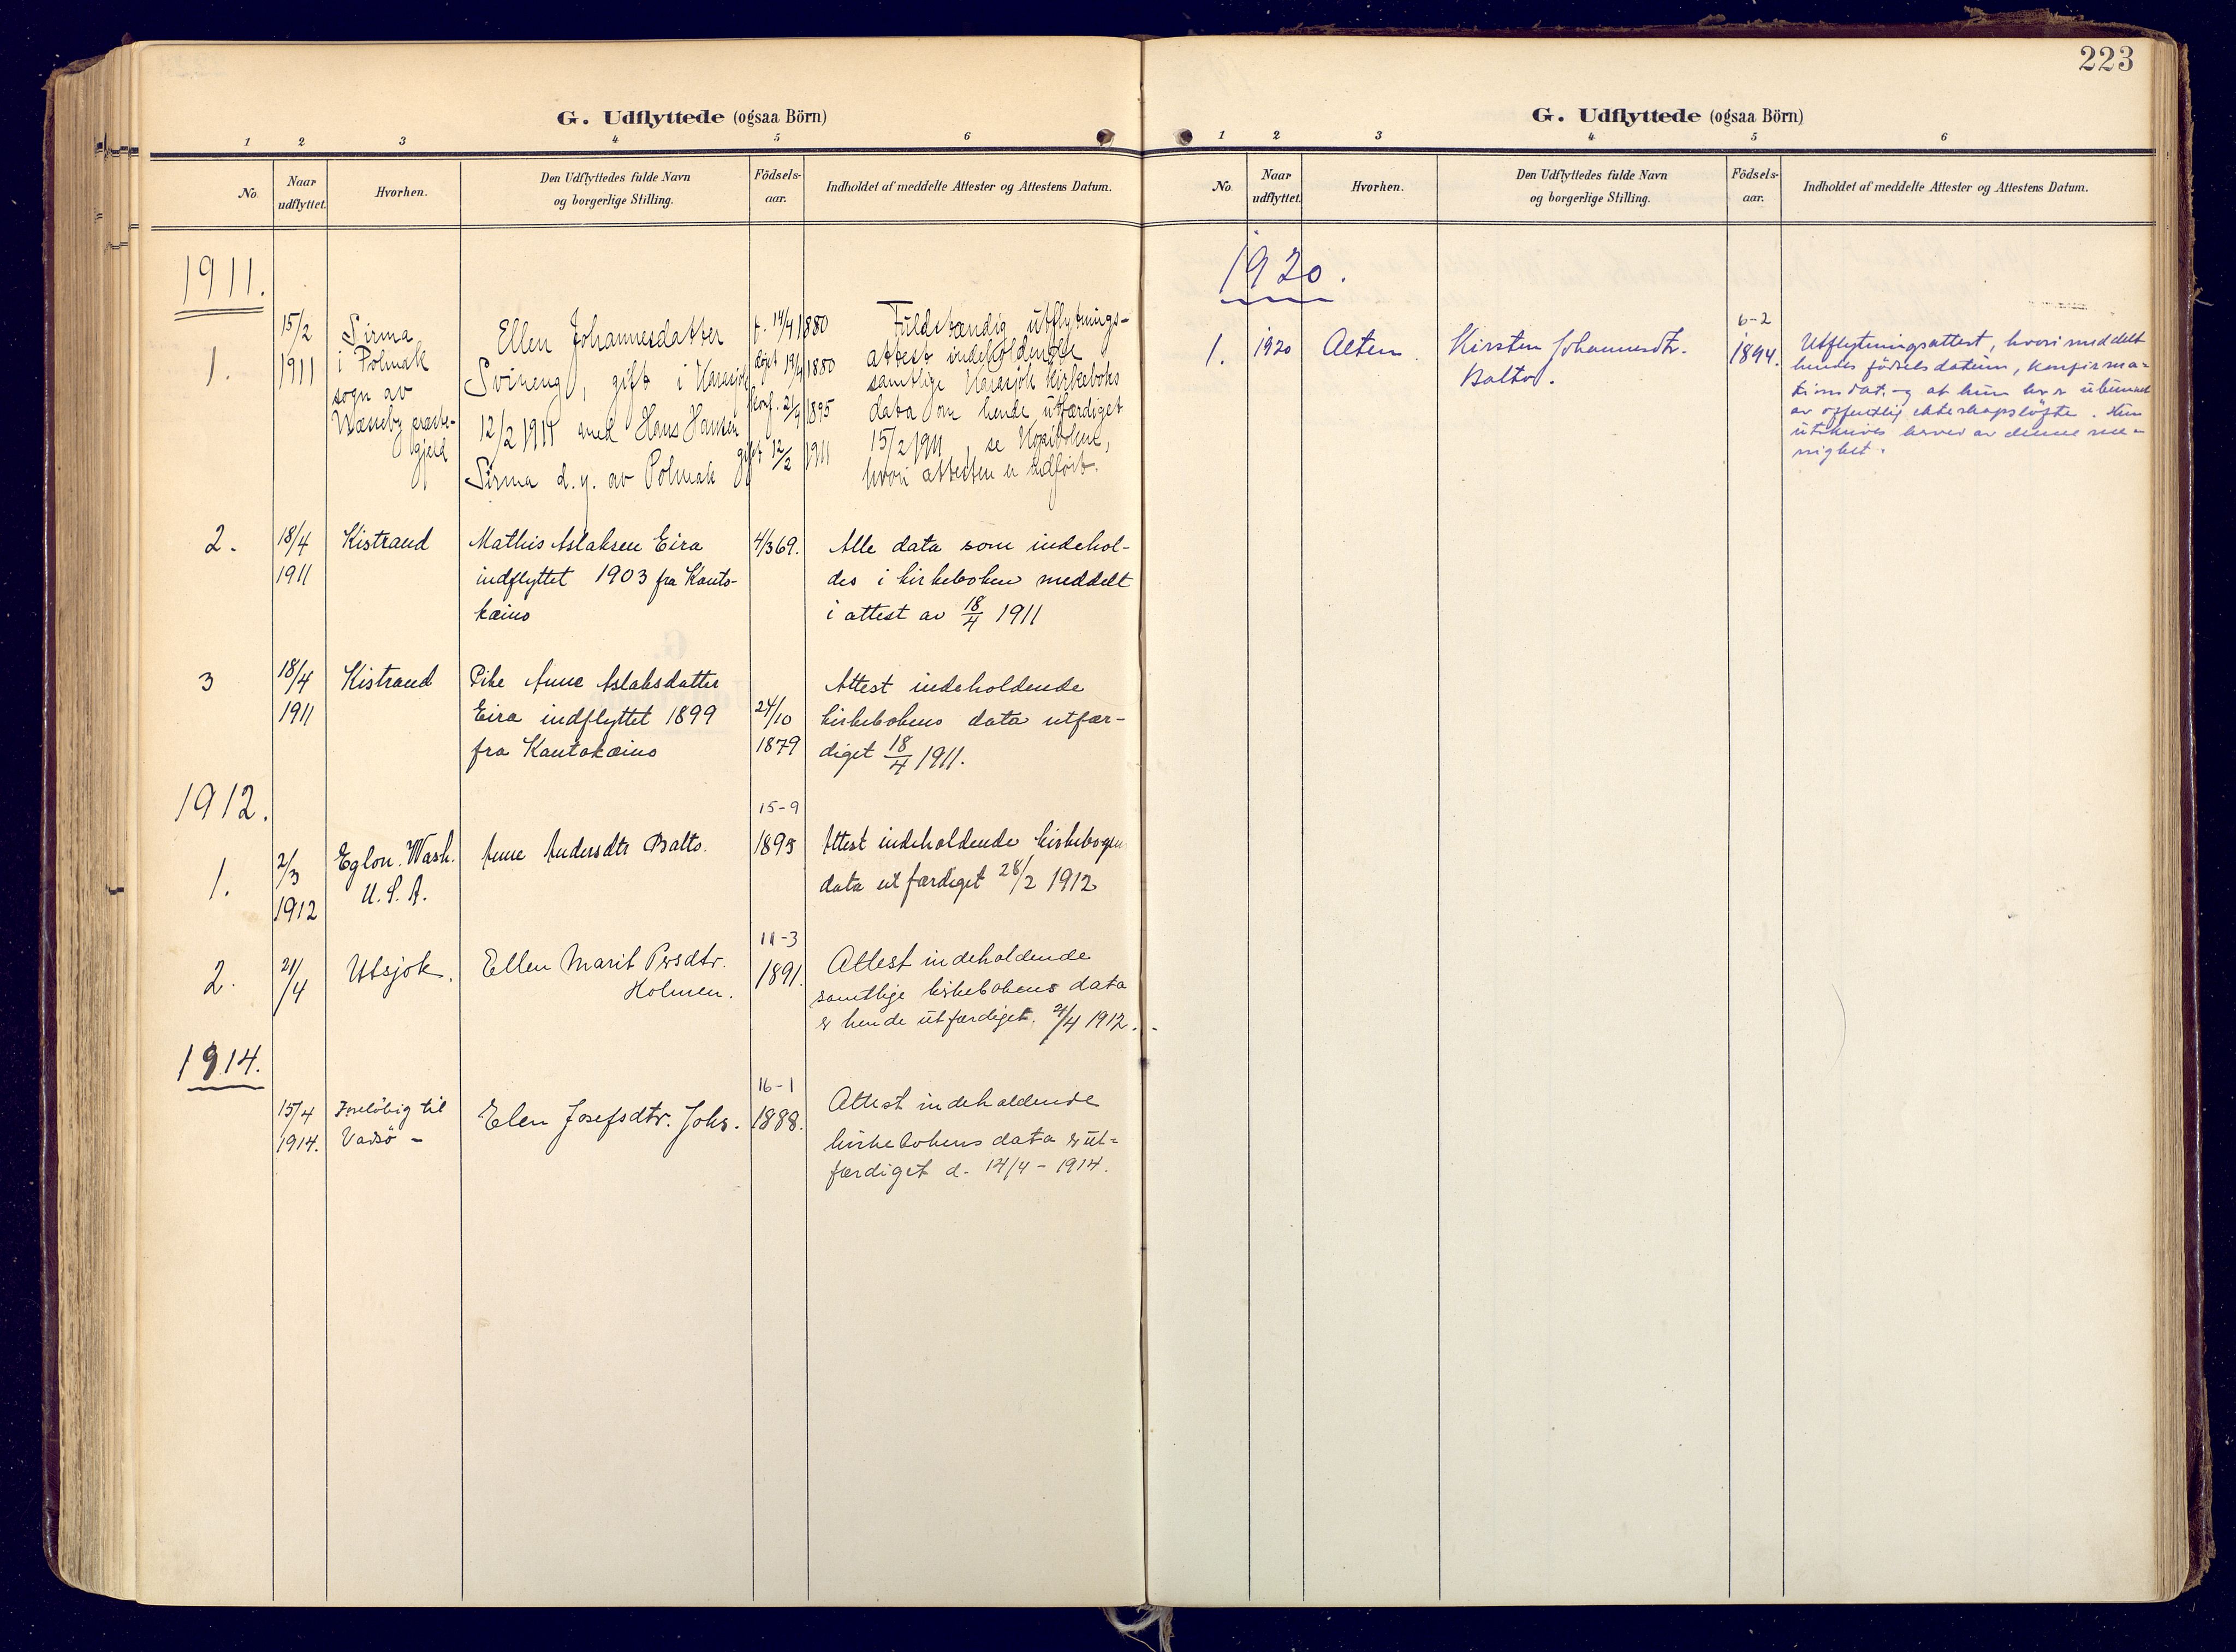 G. Udflyttede (ogsaa Börn)
1 2 3 4 5 6
No. Naar udflyttet. Hvorhen. Den Udflyttedes fulde Navn og borgerlige Stilling. Födsels-aar. Indholdet af meddelte Attester og Attestens Datum.
1911.
1.
15/2
1911
Sirma
i Polmak
sogn av
Næsseby præste-
gjeld
Ellen Johannesdatter
Svineng, gift i Karasjok
12/2 1911 med Hans Hansen
Sirma d.y. av Polmak
f. 14/4 1880
döpt 19/4 1880
konf. 21/4 1895
gift 12/2 1911
Fuldstændig utflytnings-
attest indeholdende
samtlige Karasjok Kirkeboks
data om hende utfærdiget
15/2 1911, se Kopiboken,
hvori attesten er indfört.
2.
18/4
1911
Kistrand
Mathis Aslaksen Eira
indflyttet 1903 fra Kauto-
kæino
4/3 69.
Alle data som indehol-
des i kirkeboken meddelt
i attest av 18/4 1911
3
18/4
1911
Kistrand
Pike Anne Aslaksdatter
Eira indflyttet 1899
fra Kautokæino
24/10
1879
Attest indeholdende
kirkebokens data utfær-
diget 18/4 1911.
1912.
1.
2/3
1912
Eglon. Wash.
U.S.A.
Anne Andersdtr Balto.
15-9
1895
Attest indeholdende kirkebogen
data utfærdiget 28/2 1912
2.
21/4
Utsjok.
Ellen Marit Persdtr.
Holmen.
11-3
1891.
Attest indeholdende
samtlige kirkebokens data
er hende utfærdiget. 21/4 1912.
1914.
15/4
1914.
Foreløbig til
Vadsö -
Elen Josefsdtr. Johs.
16-1
1888.
Attest indeholdende
kirkebokens data er ut-
færdiget d. 14/4 - 1914.
223
G. Udflyttede (ogsaa Börn)
1 2 3 4 5 6
No. Naar udflyttet. Hvorhen. Den Udflyttedes fulde Navn og borgerlige Stilling. Födsels-aar. Indholdet af meddelte Attester og Attestens Datum.
1920.
1.
1920
Alten.
Kirsten Johannesdtr.
Balto.
6-2
1894.
Utflytningsattest, hvori meddelt
hendes födselsdatum, konfirma-
tionsdat. og at hun er ubunnet
av offentlig ekteskapslöfte. Hun
utskrives herved av denne me-
nighet.